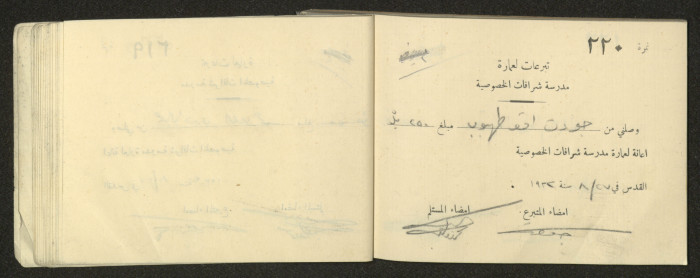 نمرة ٢٢٠
تبرعات لعمارة
مدرسة شرافات الخصوصية
وصلني من جودت افندي مبلغ ٢٥٠
اعانة لعمارة مدرسة شرافات الخصوصية
القدس في ٨/٢٧ سنة ١٩٣٢ .
امضاء المتبرع. امضاء المستلم
٣١٩